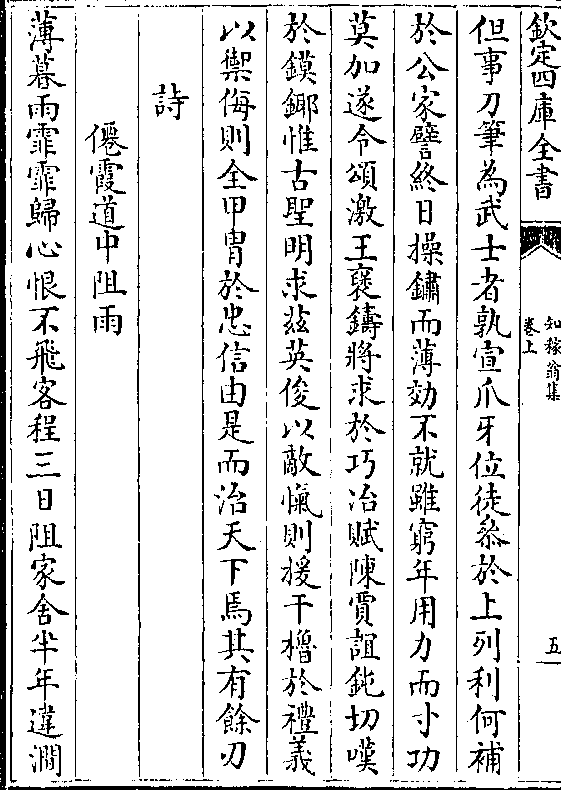 欽定四庫全書
知稼翁集
卷上
五
但事刀筆為武士者孰宣爪牙位徒叅於上列利何補
於公家譬終日操鏽而薄効不就雖窮年用力而寸功
莫加遂令頌激王襃鑄將求於巧冶賦陳賈誼鈍切嘆
於鏌鎁惟古聖明求兹英俊以敵愾則援干櫓於禮義
以禦侮則全甲胄於忠信由是而治天下焉其有餘刃
詩
僊霞道中阻雨
薄暮雨霏霏歸心恨不飛客程三日阻家舍半年違澗